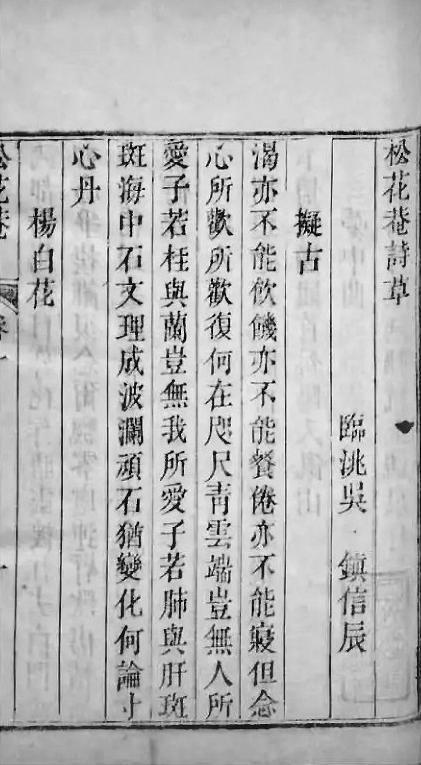 松花菴詩草
臨洮吳 鎮信辰
擬古
渴亦不能飲饑亦不能餐倦亦不能寢但念
心所歡所歡復何在咫尺青雲端豈無人所
愛子若枉與蘭豈無我所愛子若肺與肝斑
斑海中石文理成波瀾頑石猶變化何論寸
心丹
楊白花
松花菴